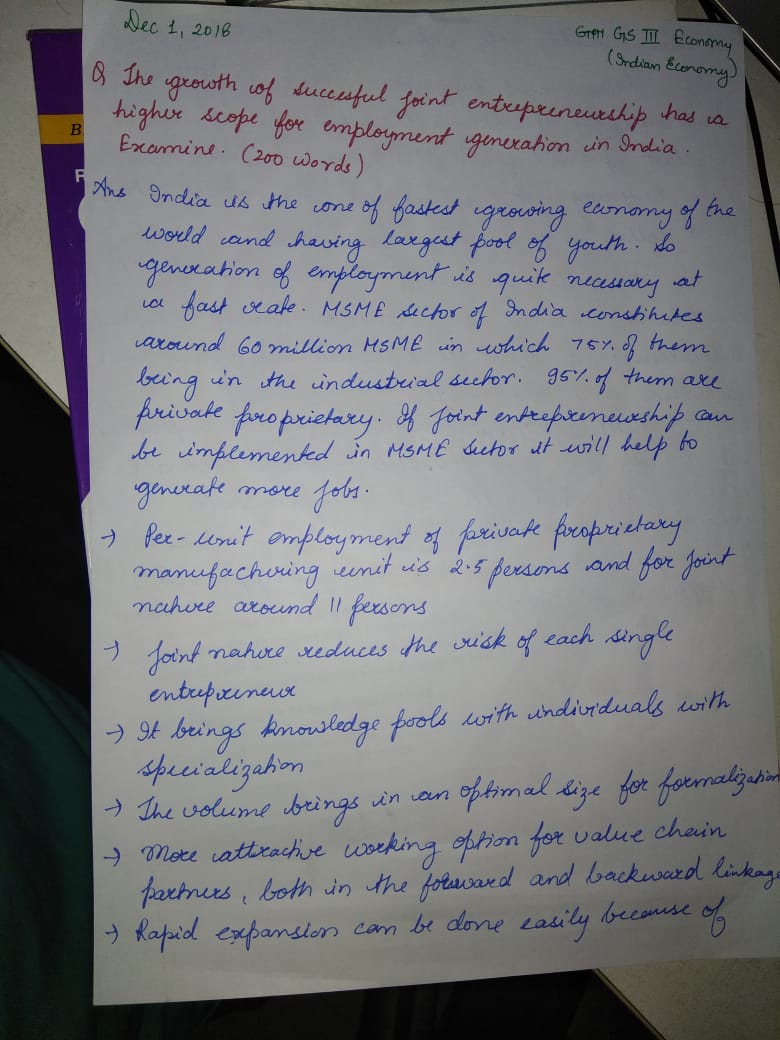 Dec 1, 2018
GS III Economy
(Indian Economy)
Q The growth of succesful joint entrepreneurship has a
higher scope for employment generation in India.
Examine. (200 words)
B
F
Ans India is the one of fastest growing economy of the
world and having largest pool of youth. So
generation of employment is quite necessary at
a fast rate. MSME sector of India constitutes
around 60 million MSME in which 75% of them
being in the industrial sector. 95% of them are
private proprietary. If joint entrepreneurship can
be implemented in MSME sector it will help to
generate more jobs.
→ Per-unit employment of private proprietary
manufacturing unit is 2.5 persons and for joint
nature around 11 persons
→ Joint nature reduces the risk of each single
entrepreneur
→ It brings knowledge pools with individuals with
specialization
→ The volume brings in an optimal size for formalization
→ More attractive working option for value chain
partners, both in the forward and backward linkage
→ Rapid expansion can be done easily because of